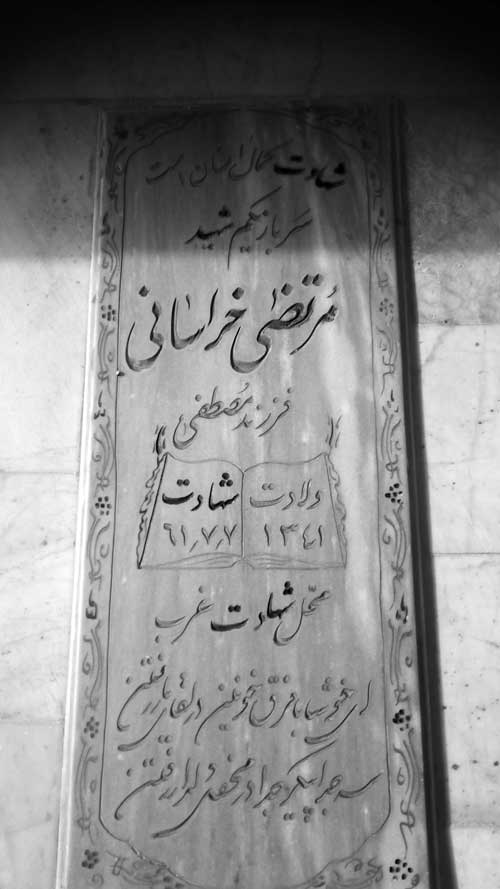 شهادت کمال انسان است
سرباز یکم شهید
مرتضی خراسانی
فرزند مصطفی
ولادت شهادت
۱۳۴۱ ۶۱٫۷٫۷
محل شهادت غرب
ای خوشا با فرق خونین در لقای یار رفتن
سر جدا پیکر جدا در محفل دلدار رفتن